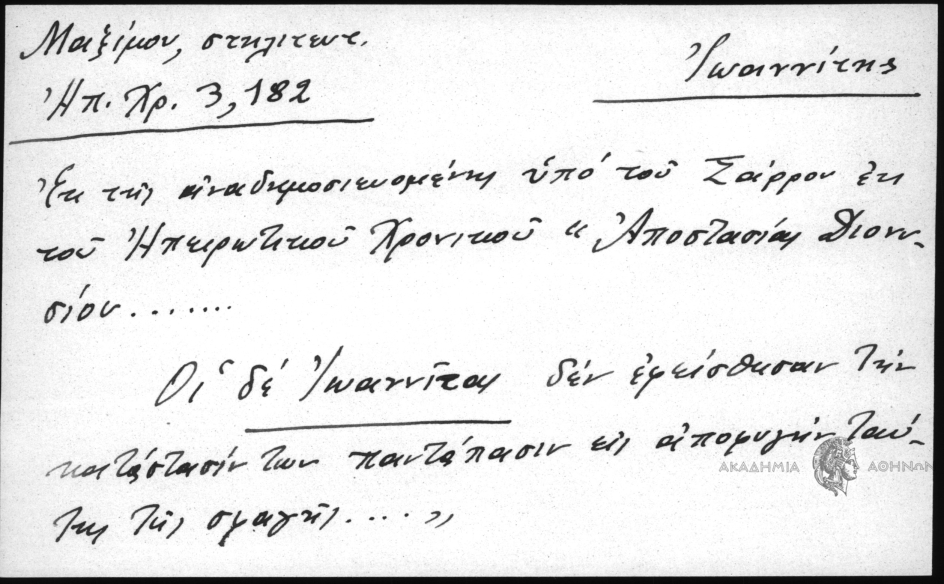 Μαξίμου, στηλιτευτ.
Ἠπ. Χρ. 3, 182
Ἰωαννίτης
Ἐκ τῆς ἀναδημοσιευομένης ὑπό τοῦ Σάρρου ἐκ
τοῦ Ἠπειρωτικοῦ Χρονικοῦ " Ἀποστασίας Διονυ-
σίου.......
Οἱ δέ Ἰωαννῖται δέν ἐφείσθησαν τήν
κατάστασίν των παντάπασιν εἰς ἀποφυγήν ταύ-
της τῆς σφαγῆς.... "
ΑΚΑΔΗΜΙΑ ΑΘΗΝΩΝ